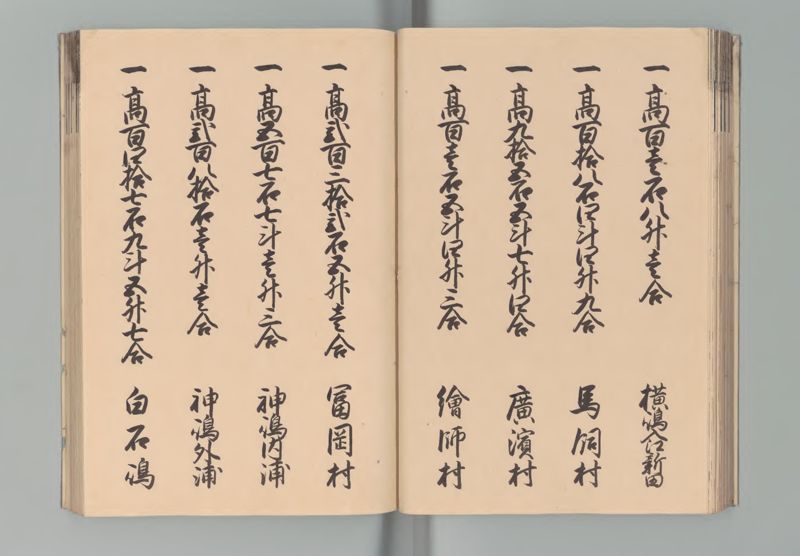 一高百壱石八升壱合 横嶋入江新田
一高百拾八石四斗四升九合 馬飼村
一高九拾五石五斗七升四合 廣濱村
一高百壱石五斗四升三合 繪師村
一高弐百三拾弐石五升壱合 冨岡村
一高五百七石七斗壱升三合 神嶋内浦
一高弐百八拾石壱升壱合 神嶋外浦
一高百四拾七石九斗五升七合 白石嶋